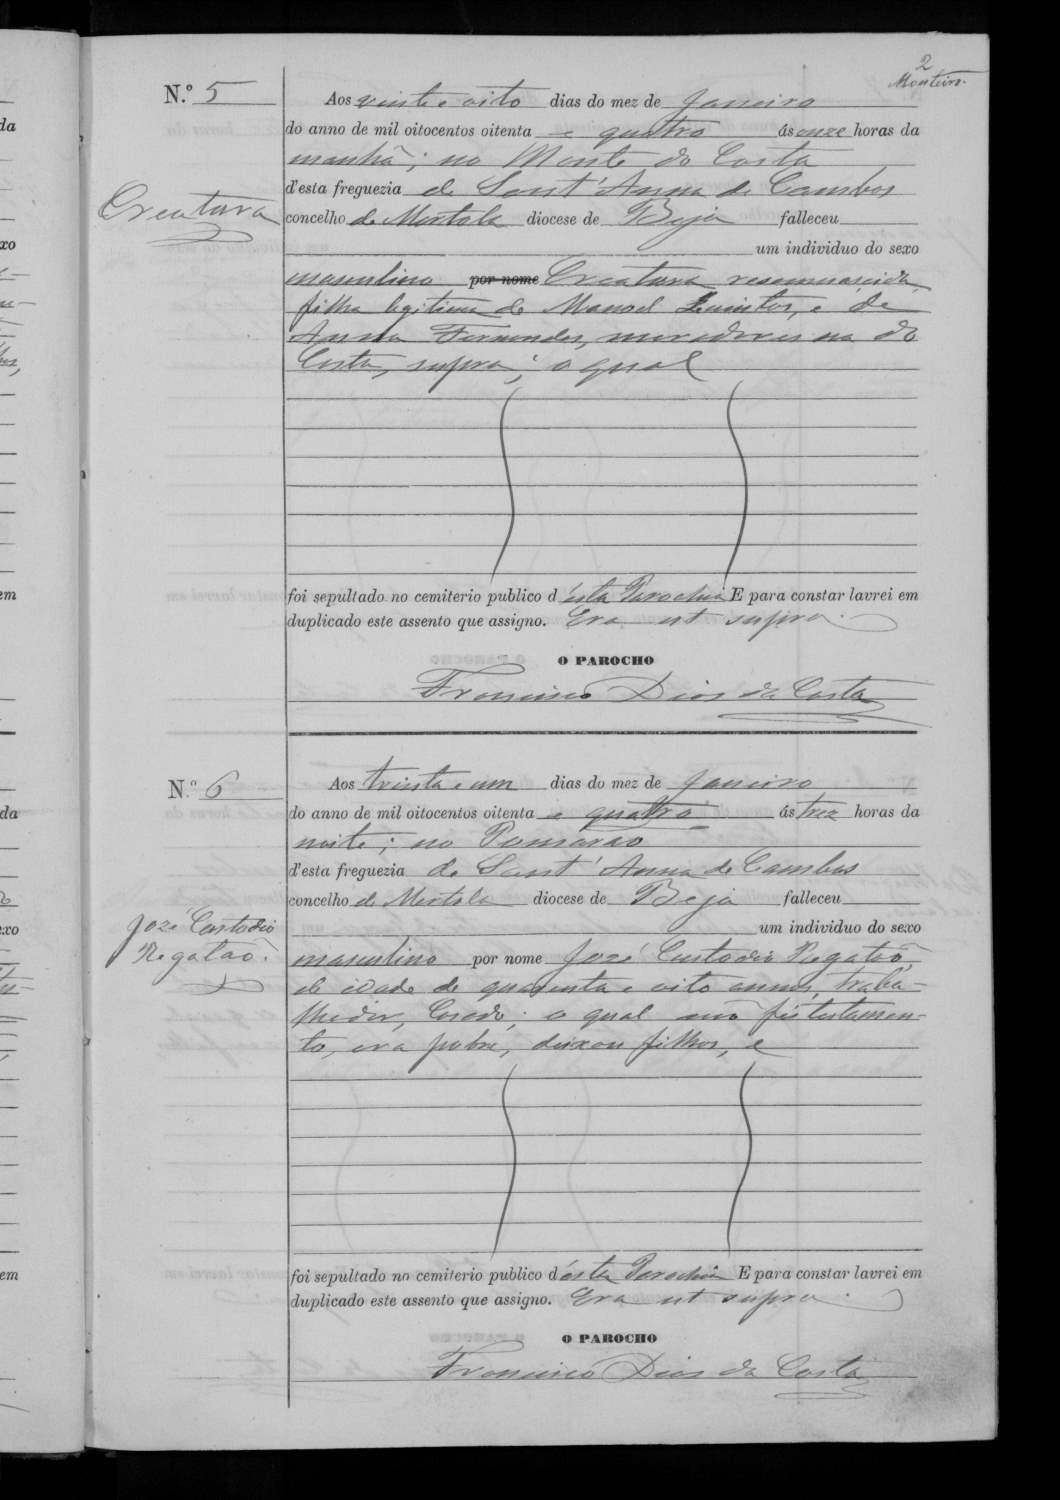 2
Monteiro.
N.º 5
Aos vinte e oito dias do mez de Janeiro
do anno de mil oitocentos oitenta e quatro ás onze horas da
manhã; no Monte do Costa
d'esta freguezia de Sant'Anna de Cambas
concelho de Mertola diocese de Beja falleceu
Creatura
um individuo do sexo
masculino por nome Creatura resemnascida,
filha legitima de Manoel, e de
Anna Fernandes, moradores na do
Costa, supra; o qual
foi sepultado no cemiterio publico d'ésta Parochia E para constar lavrei em
duplicado este assento que assigno. Era ut supra.
O PAROCHO
Francisco Dias da Costa
N.º 6
Aos trinta e um dias do mez de Janeiro
do anno de mil oitocentos oitenta e quatro ás trez horas da
noite; no Pomarão
d'esta freguezia de Sant'Anna de Cambas
concelho de Mertola diocese de Beja falleceu
José Custodio
Regatão.
um individuo do sexo
masculino por nome José Custodio Regatão,
de idade de quarenta e oito annos, traba-
lhador, Casado; o qual não fes testamen-
to, era pobre, deixou filhos, e
foi sepultado no cemiterio publico d'ésta Parochia E para constar lavrei em
duplicado este assento que assigno. Era ut supra.
O PAROCHO
Francisco Dias da Costa